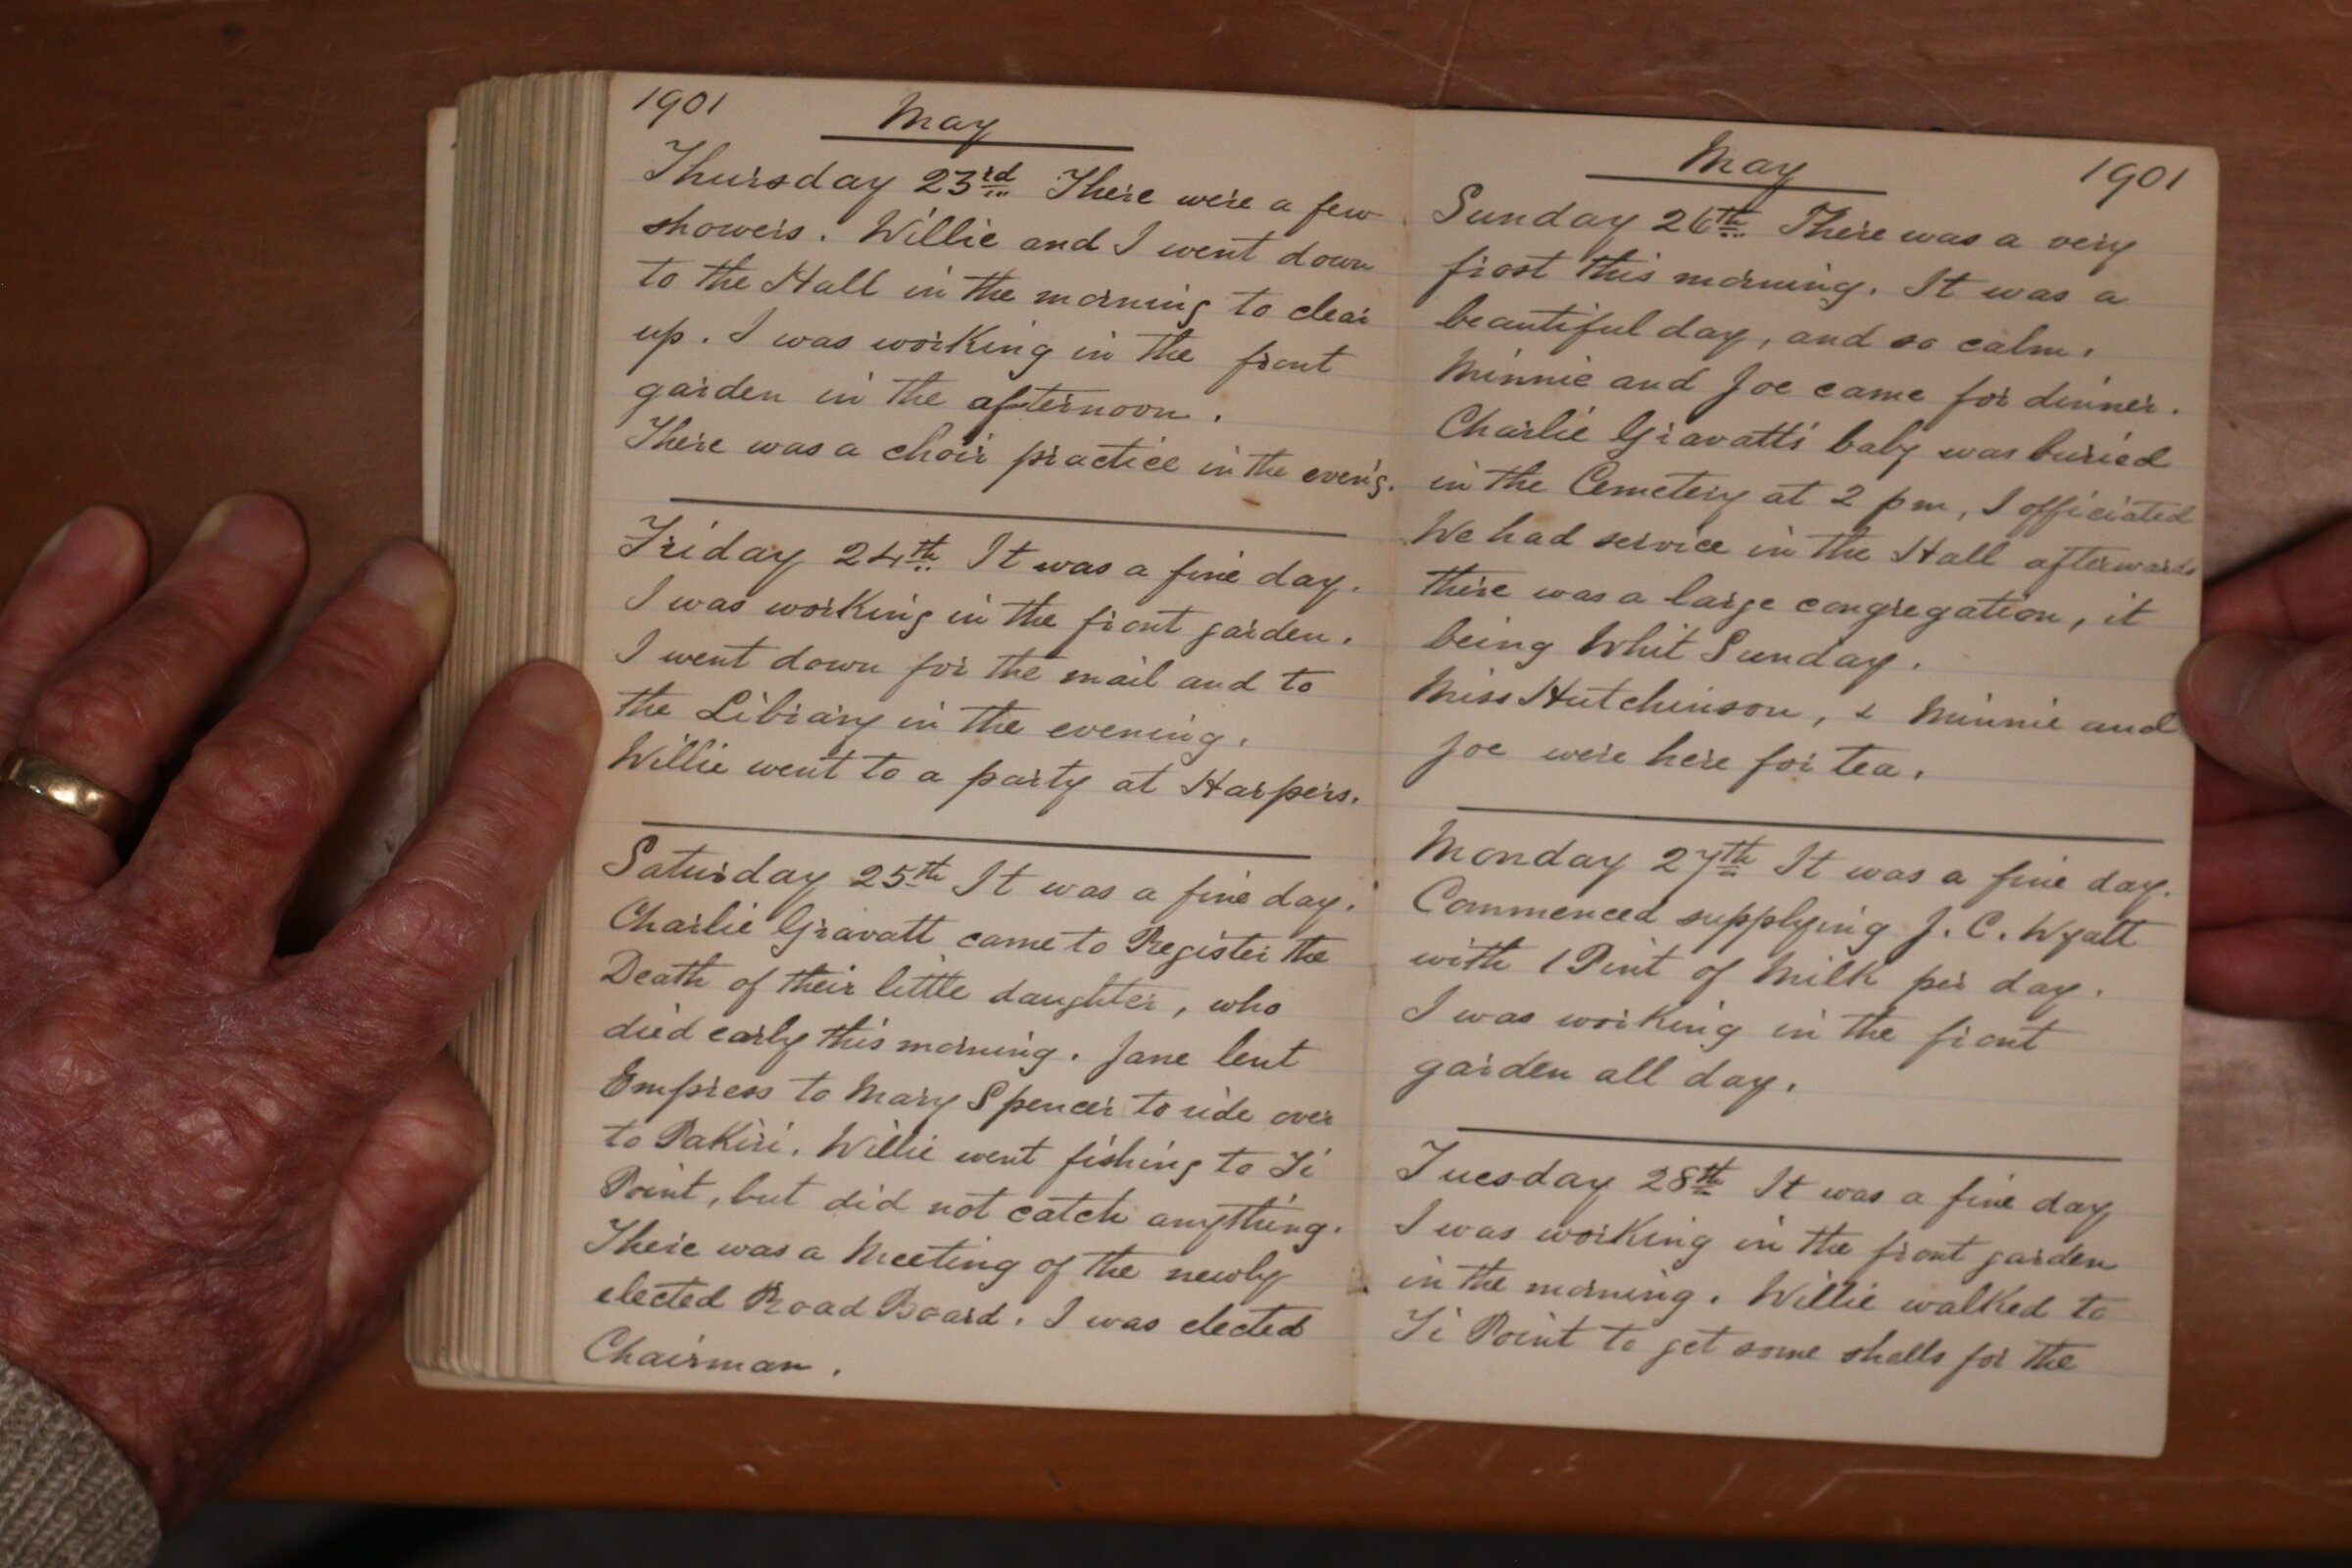 1901
May
Thursday 23rd There were a few
showers. Willie and I went down
to the Hall in the morning to clear
up. I was working in the front
garden in the afternoon.
There was a choir practice in the even'g.
Friday 24th It was a fine day.
I was working in the front garden.
I went down for the mail and to
the Library in the evening.
Willie went to a party at Harpers.
Saturday 25th It was a fine day.
Charlie Gravatt came to Register the
Death of their little daughter, who
died early this morning. Jane lent
Empress to Mary Spencer to ride over
to Pakiri. Willie went fishing to Ti
Point, but did not catch anything.
There was a Meeting of the newly
elected Road Board. I was elected
Chairman.
May
1901
Sunday 26th There was a very
frost this morning. It was a
beautiful day, and so calm.
Minnie and Joe came for dinner.
Charlie Gravatts' baby was buried
in the Cemetery at 2 pm, I officiated
We had service in the Hall afterwards
there was a large congregation, it
being Whit Sunday.
Miss Hutchinson, & Minnie and
Joe were here for tea.
Monday 27th It was a fine day.
Commenced supplying J. C. Wyatt
with 1 Pint of Milk per day.
I was working in the front
garden all day.
Tuesday 28th It was a fine day
I was working in the front garden
in the morning. Willie walked to
Ti Point to get some shells for the